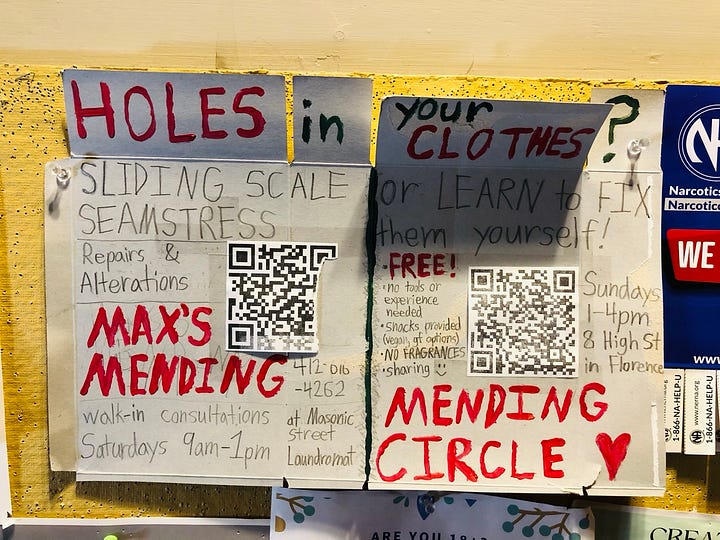 HOLES in your
CLOTHES?
SLIDING SCALE
SEAMSTRESS
Repairs &
Alterations
MAX'S
MENDING
412-616
-4262
walk-in consultations
Saturdays 9am-1pm
at Masonic
street
Laundromat
or LEARN to FIX
them yourself!
FREE!
• no tools or
experience
needed
• snacks provided
(vegan, gf options)
• NO FRAGRANCES
• sharing
Sundays
1-4pm
8 High St
in Florence
MENDING
CIRCLE
NA
Narcotics
Narcotic
WE
www
1-866-NA-HELP-U
www.nerna.org
1-866-NA-HELP-U
ARE YOU 18+?
CREA